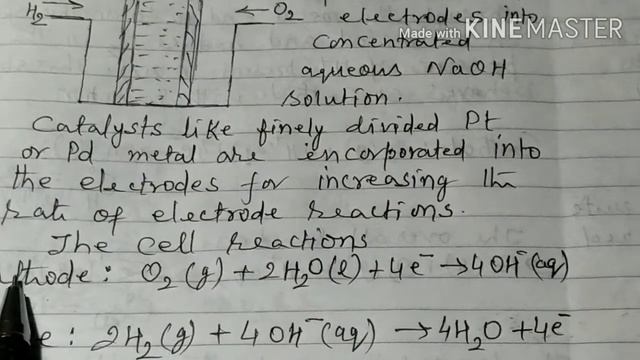 H₂
O₂ electrodes into
Made with KINEMASTER
concentrated
aqueous NaOH
solution.
Catalysts like finely divided Pt
or Pd metal are encorporated into
the electrodes for increasing the
rate of electrode reactions.
The cell reactions
thode: O₂(g) + 2H₂O(l) + 4e⁻ → 4OH⁻(aq)
e: 2H₂(g) + 4OH⁻(aq) → 4H₂O + 4e⁻